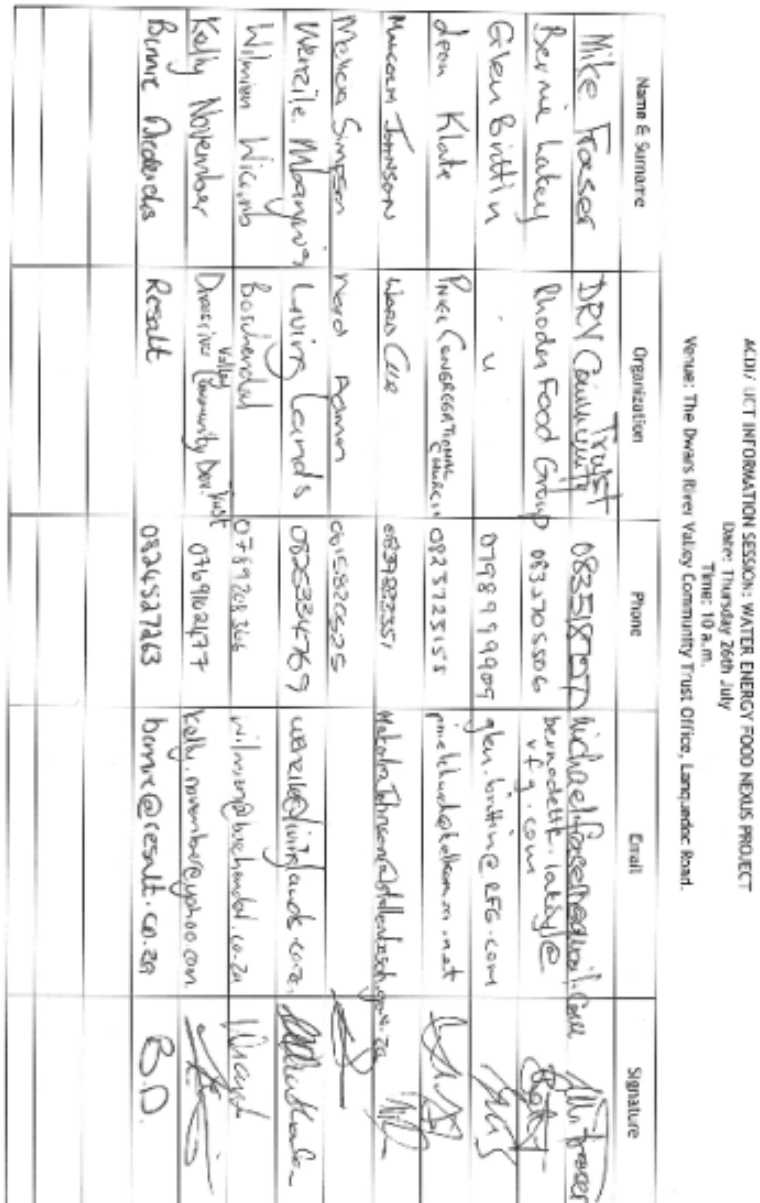 ACDI/ UCT INFORMATION SESSION: WATER ENERGY FOOD NEXUS PROJECT
Date: Thursday 26th July
Time: 10 a.m.
Venue: The Dwars River Valley Community Trust Office, Languedoc Road.
Name & Surname Organization Phone Email Signature
Mike Fraser DRV Community Trust
Bernie Lakey Rhodes Food Group 0832705506 bernadette.lakey@
rfg.com
Glen Brittin " 0798999909 glen.brittin@RFG.com
Leon Klate PNIEL CONGREGATIONAL CHURCH 0823725158
MALCOLM JOHNSON WARD 0839823351
Simpson Ward Admin 0615820625
Wenzile Living Lands 0825334769 wenzile@livinglands.co.za
Wilmien Wicomb Boschendal 0789208366 wilmien@boschendal.co.za
Kelly November Dwarsriver Valley Community Dev. Trust 0769102477 kelly.november@yahoo.com
Binnie Diedericks Resalt 0824527263 binnie@resalt.co.za B.D.